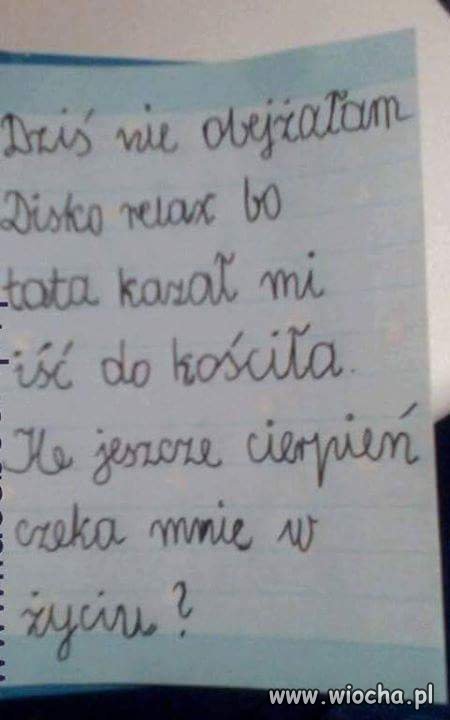 Dziś nie obejżałam
Disko relax bo
tata kazał mi
iść do kościła.
Ile jeszcze cierpień
czeka mnie w
życiu?
www.wiocha.pl